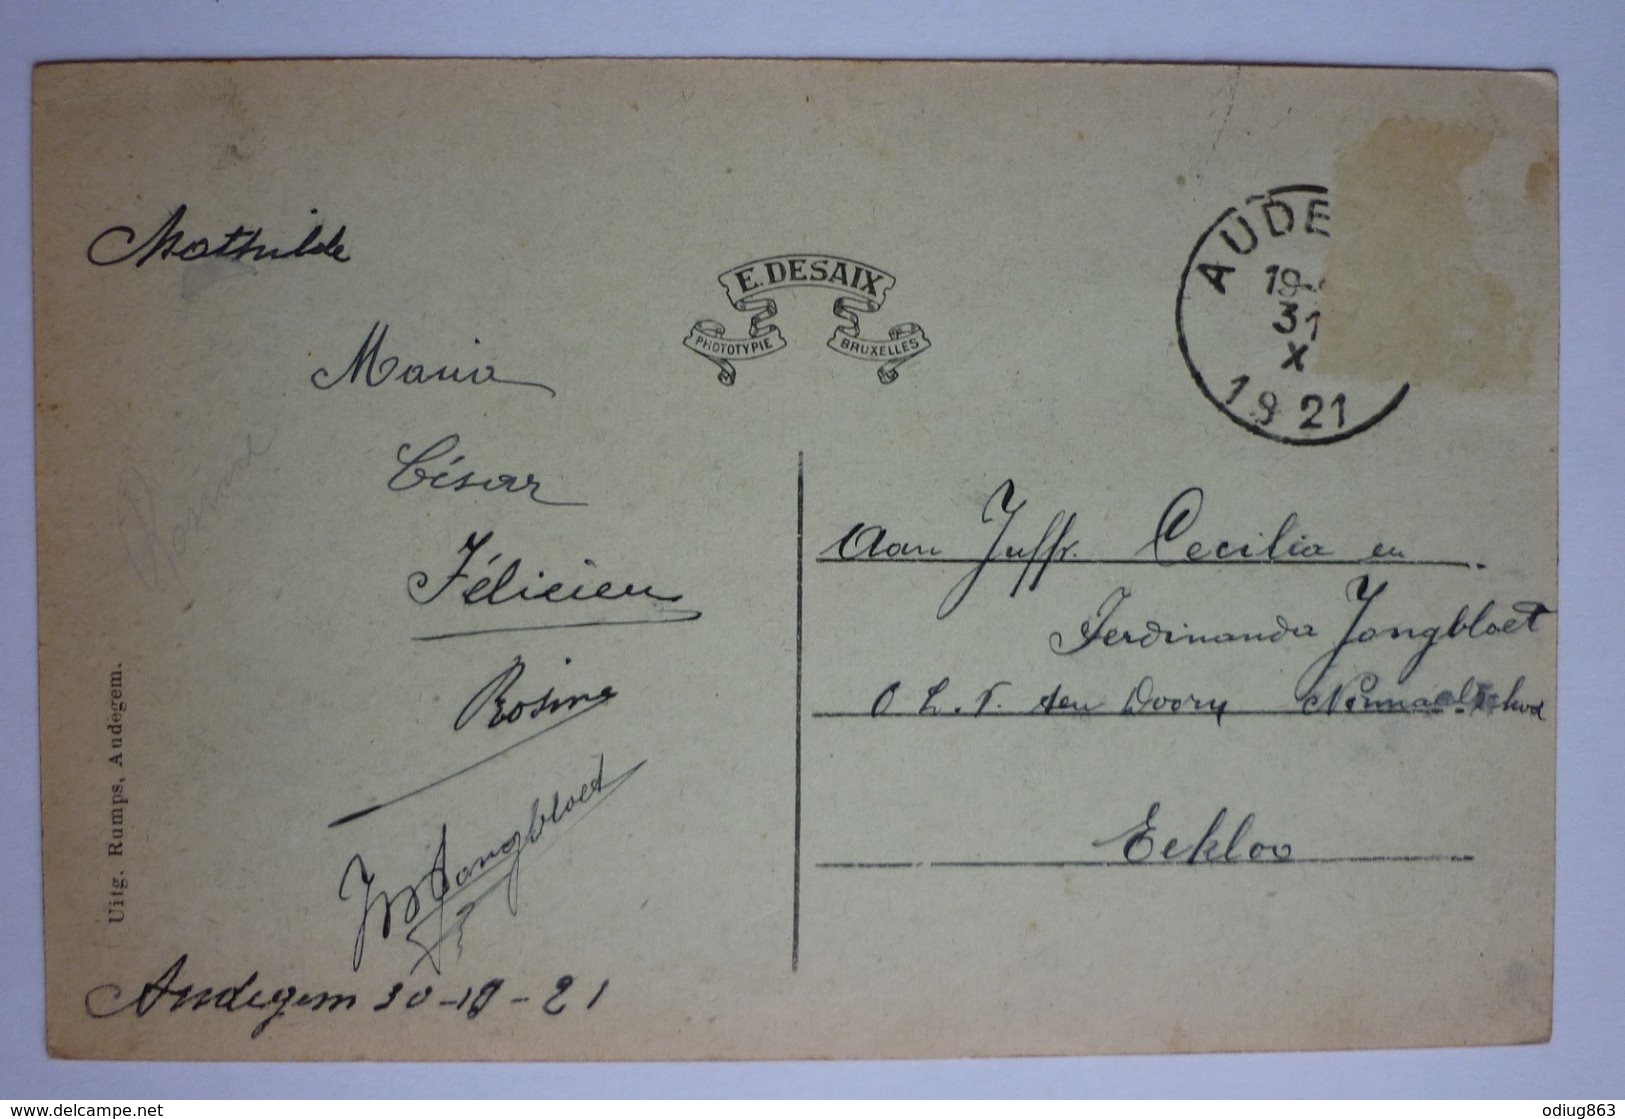 Mathilde
Maria
César
Félicien
Rosine
Rosine
Jongbloet
Andegem 30-10-21
Uitg. Rumps, Andegem.
E. DESAIX
PHOTOTYPIE BRUXELLES
AUDE
19
31
X
1921
Aan Juffr. Cecilia en
Ferdinanda Jongbloet
O. L. V. ten Doorn Normaalschool
Eekloo
delcampe.net
odiug863